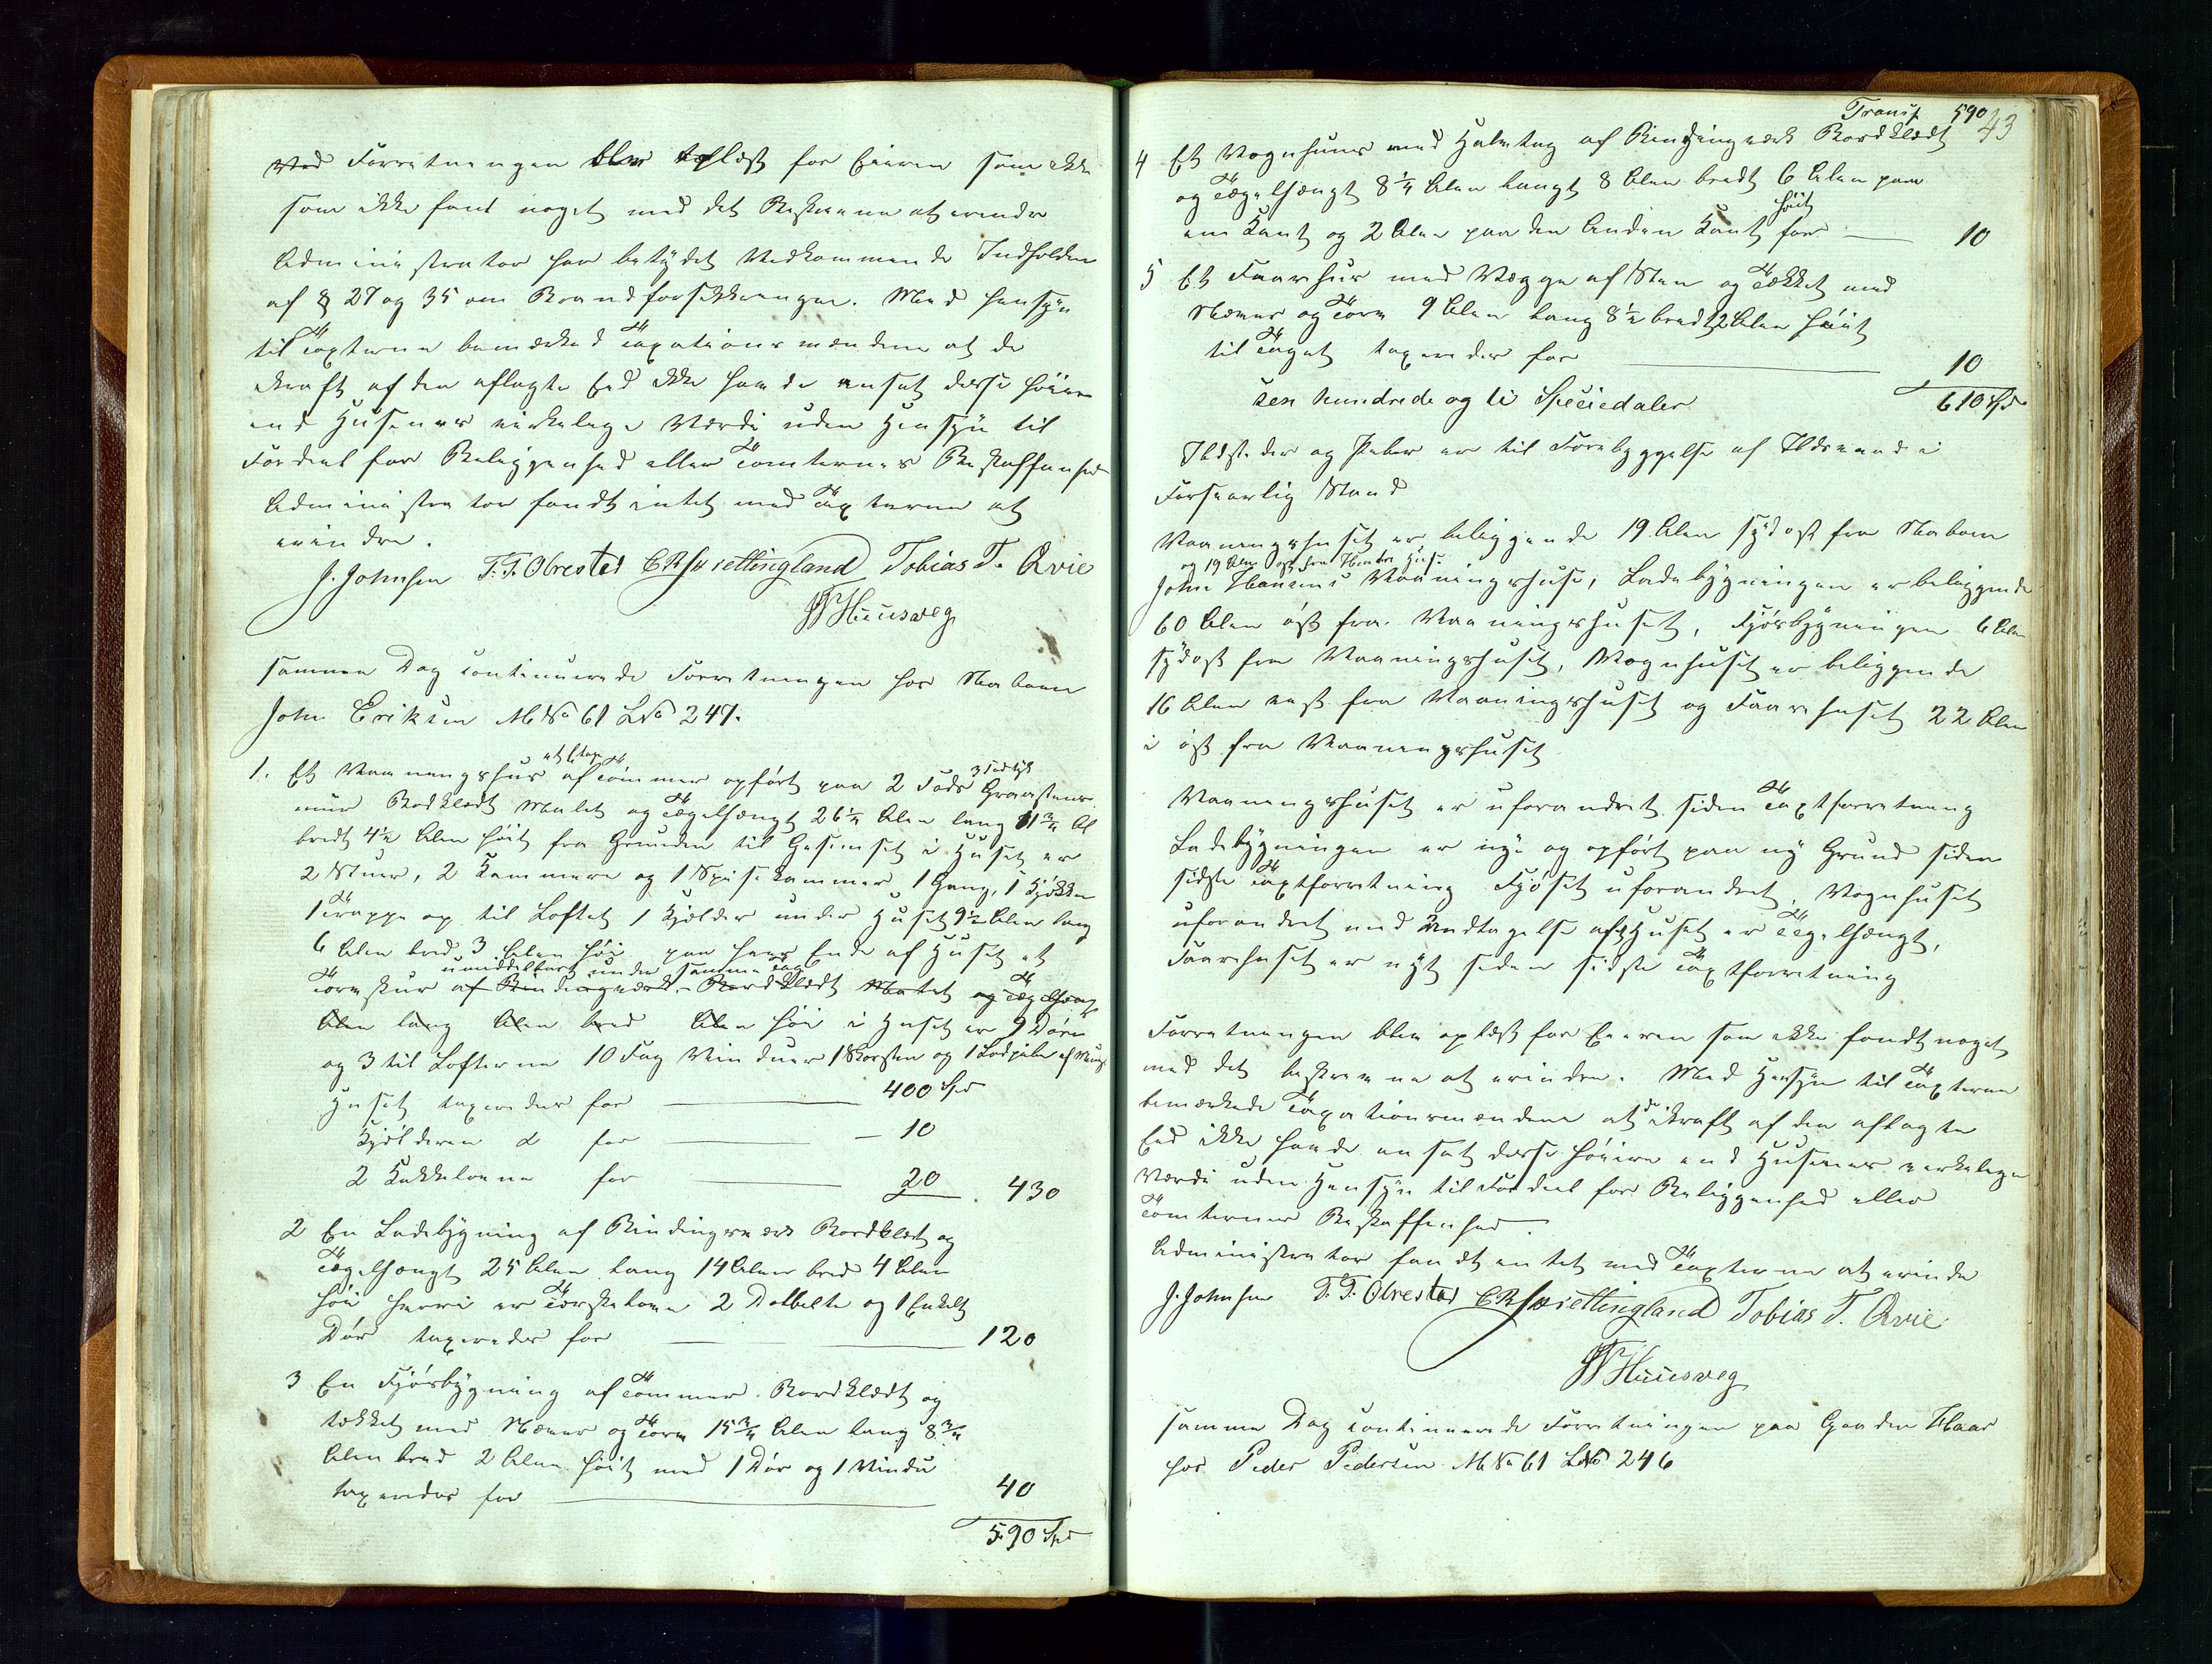 Ved Forretningen blev oplæst for Eieren som ikke
som ikke fant noget med det Beskrevne at erindre
Administrator har betydet Vedkommende Indholden
af § 27 og 35 om Brandforsikkringen. Med Hensyn
til Taxterne bemærked Taxationsmændene at de
ikraft af den aflagte Eed ikke havde ansat disse høiere
end Husenes virkelige Værdi uden Hensyn til
Fordeel for Beliggenhed eller Tomternes Beskaffenhed
Administrator fandt intet med Taxterne at
erindre.
J. Johnsen T. T. Obrestad Tobias T. Qvie
Huusveg
samme Dag continuerede Forretningen hos Naboen
John Eriksen M No 61 L No 247.
1. Et Vaaningshus af Tømmer opført paa 2 Fods 3 Fod tyk Graastens
muur Bordklædt Malet og Tægelhængt 26 1/4 Alen lang 11 3/4 Al
bredt 4 1/2 Alen høit fra Grunden til Gesimset i Huset er
2 Stuer, 2 Kammere og 1 Spisekammer, 1 Gang, 1 Kjøkken
1 Trappe op til Loftet 1 Kjælder under Huset 9 1/2 Alen lang
6 Alen bred 3 Alen høi paa hver Ende af Huset et
umiddelbart under samme Tag
Torvskur af Bindingværk Bordklædt Malet og Tægelhængt
Alen lang Alen bred Alen høi i Huset er 9 Døre
og 3 til Lofterne 10 Fag Vinduer 1 Skorsten og 1
Huset taxeredes for 400 Spd
Kjelderen d for 10
2 Kakkelovne for 20 430
2 En Ladebygning af Bindingsværk Bordklædt og
Tægelhængt 25 Alen lang 14 Alen bred 4 Alen
høi heri er 2 Dobbelte og 1 Enkelt
Dør taxeredes for 120
3 En Fjøsbygning af Tømmer Bordklædt og
tækket med Næver og Torv 15 3/4 Alen lang 8 3/4
Alen bred 2 Alen høit med 1 Dør og 1 Vindu
taxeredes for 40
590 Spd
Transp 590 43
4 Et Vognhuus med Halmtag af Bindingværk Bordklædt
og Tægelhængt 8 1/4 Alen langt 8 Alen bredt 6 Alen paa
een Kant og 2 Alen paa den Anden Kant høit for 10
5 Et Faarehus med Vægge af Sten og Tækket med
Næver og Torv 9 Alen lang 8 1/2 bredt 2 Alen høit
til Taget taxeredes for 10
sex hundrede og ti Speciedaler 610 Spd
Ildsteder og Piber er til Forebyggelse af Ildsvaade i
Forsvarlig Stand
Vaaningshuset er beliggende 19 Alen sydost fra Naboen
og 19 Alen ost fra Huse
John Hansens Vaaningshuse, Ladebygningen er beliggende
60 Alen øst fra Vaaningshuset, Fjøsbygningen 6 Alen
sydost fra Vaaningshuset, Vognhuset er beliggende
16 Alen vest fra Vaaningshuset og Faarehuset 22 Alen
i øst fra Vaaningshuset
Vaaningshuset er uforandret siden Taxtforretning
Ladebygningen er nye og opført paa ny Grund siden
sidste Taxtforretning Fjøset uforandret, Vognhuset
uforandret med Undtagelse af Huset er Tægelhængt,
Faarehuset er nyt siden sidste Taxtforretning
Forretningen blev oplæst for Eieren som ikke fandt noget
med det beskrevne at erindre. Med Hensyn til Taxterne
bemærkede Taxationsmændene at de ikraft af den aflagte
Eed ikke havde ansat disse høiere end Husenes virkelige
Værdi uden Hensyn til Fordeel for Beliggenhed eller
Tomternes Beskaffenhed.
Administrator fandt intet med Taxterne at erindre
J. Johnsen T. T. Obrestad Tobias T. Qvie
Huusveg
samme Dag continuerede Forretningen paa Gaarden Haar
hos Peder Pedersen M No 61 L No 246